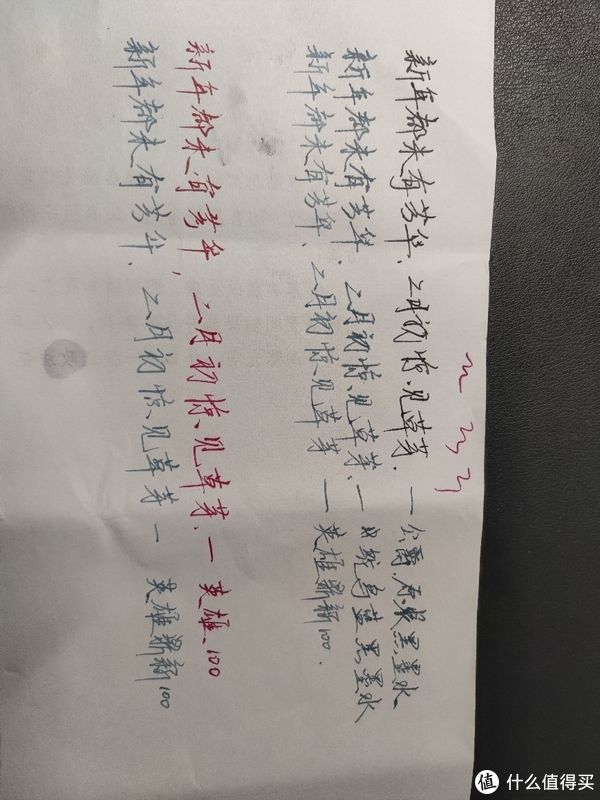 新年都未有芳华、二月初惊见草芽.—公爵原装黑墨水
新年都未有芳华,二月初惊见草芽、—蓝黑墨水
新年都未有芳华、二月初惊见草芽—英雄鼎新100.
新年都未有芳华,二月初惊见草芽、—英雄、100
新年都未有芳华、二月初惊见草芽—英雄鼎新100
值 什么值得买